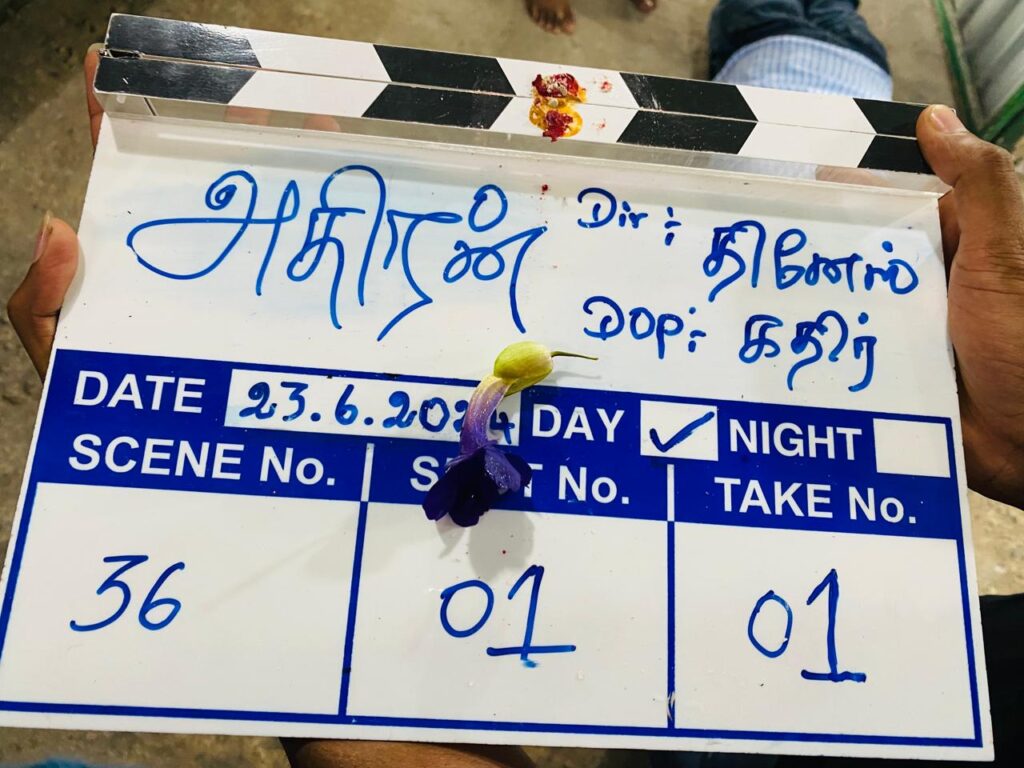 அதிரன்
Dir : தினேஸ்
DOP : கதிர்
DATE 23.6.2024 DAY ✓ NIGHT
SCENE No. SHOT No. TAKE No.
36 01 01